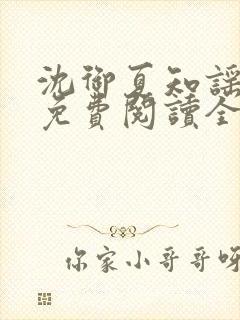 沈御夏知謠
免費閱讀全
你家小哥哥呀